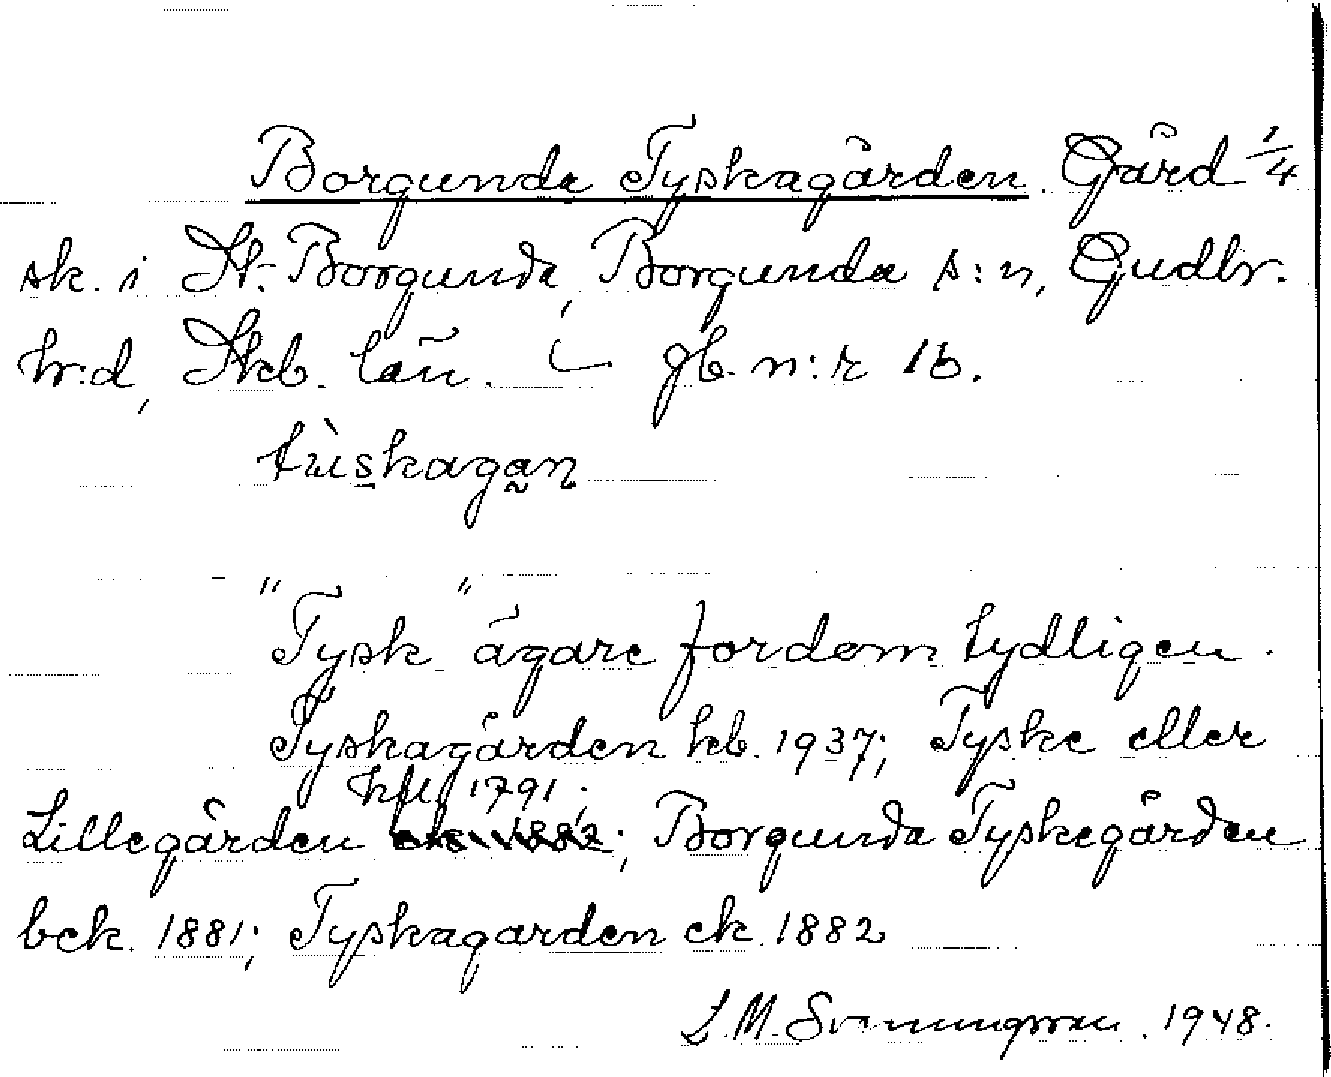 Borgunda Tyskagården. Gård 1/4
sk. i St. Borgunda, Borgunda s:n, Gudhr.
hr:d, Skb. län. gb. n:r 16.
"Tysk" ägare fordom tydligen.
Tyskagården kb. 1937; Tyske eller
hfl 1791;
Lillegården ; Borgunda Tyskegården
bek. 1881; Tyskagarden ek. 1882
L. M. Svenungsson. 1948.